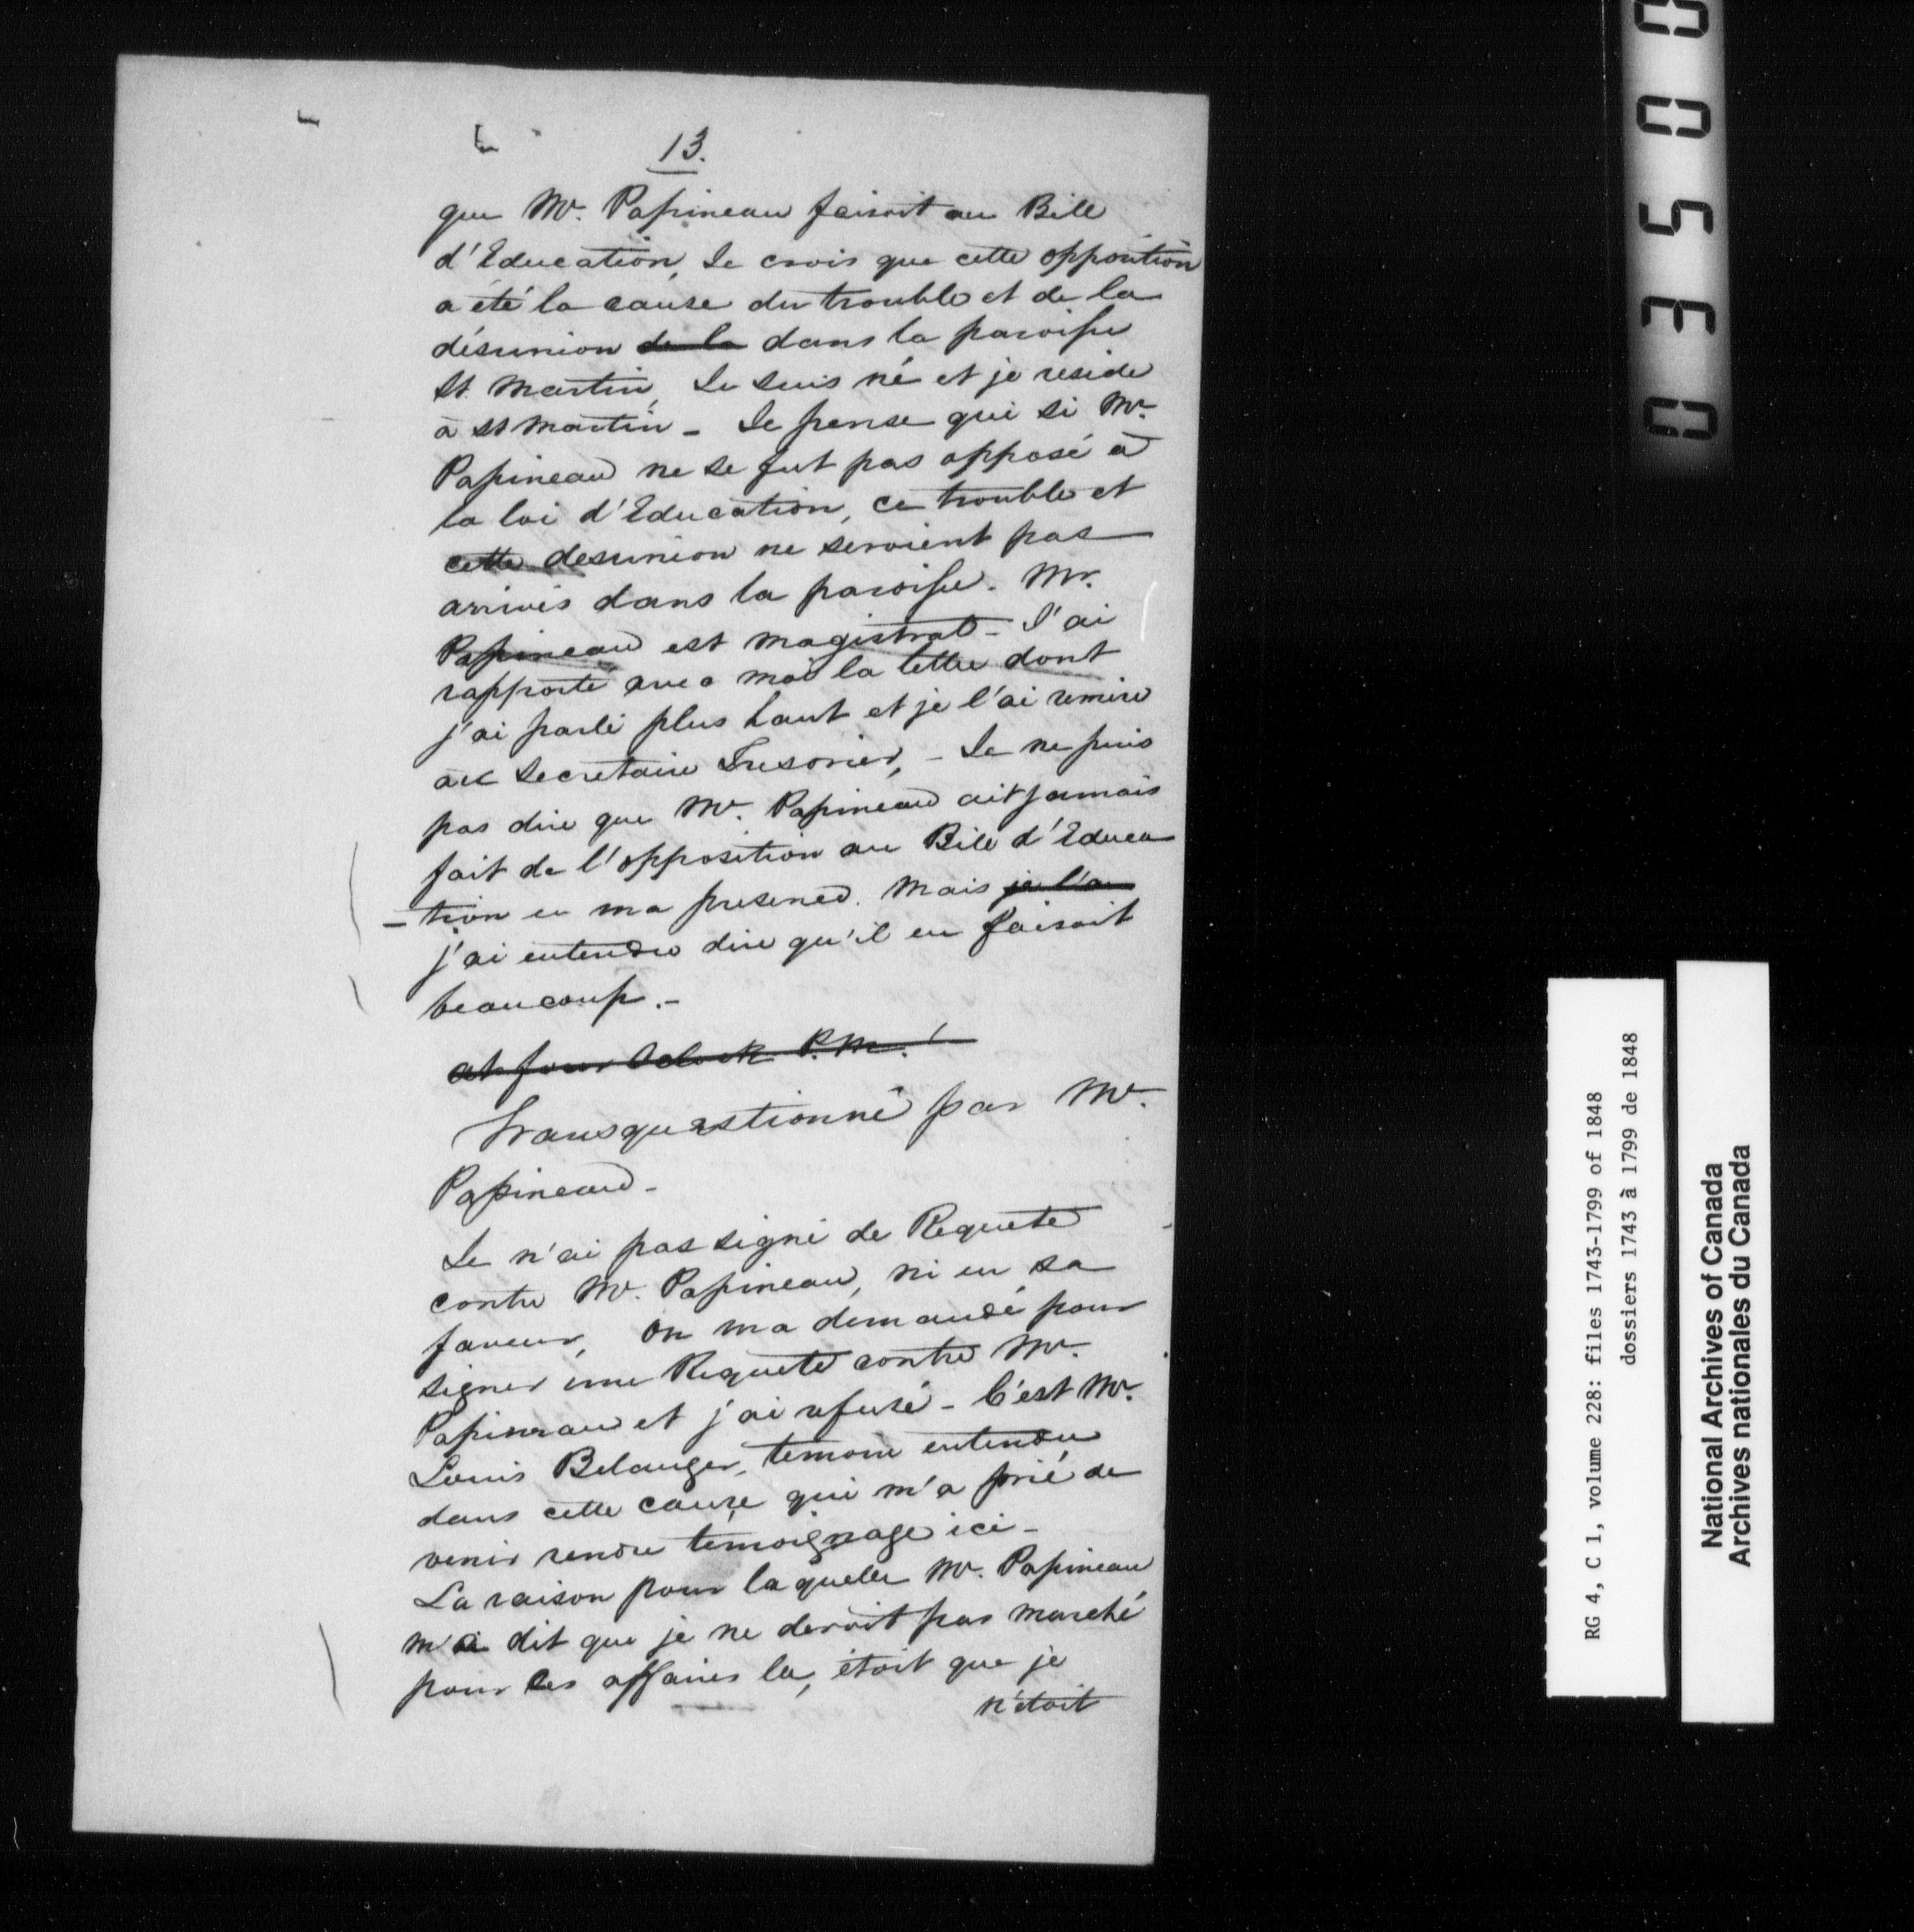 13.
que Mr. Papineau faisoit au Bill
d'Education, Je crois que cette opposition
a été la cause du trouble et de la
désunion de la dans la paroisse
St. Martin, Je suis né et je reside
à St Martin - Je pense que si Mr.
Papineau ne se fut pas opposé à
la loi d'Education, ce trouble et
cette desunion ne seroient pas
arrivés dans la paroisse. Mr.
Papineau est magistrat - J'ai
rapporté avec moi la lettre dont
j'ai parlé plus haut et je l'ai remise
au Secretaire Tresorier, - Je ne puis
pas dire que Mr. Papineau ait jamais
fait de l'opposition au Bill d'Educa
-tion en ma presence. Mais je l'ai
j'ai entendu dire qu'il en faisoit
beaucoup. -
At four Oclock P.M.
Transquestionné par Mr.
Papineau -
Je n'ai pas signé de Requete
contre Mr. Papineau, ni en sa
faveur, On ma demandé pour
signer une Requete contre Mr.
Papineau et j'ai refusé - C'est Mr.
Louis Belanger, temoin entendu
dans cette cause qui m'a prié de
venir rendre témoignage ici -
La raison pour laquelle Mr. Papineau
m'a dit que je ne devoit pas marché
pour ces affaires la, étoit que je
n'étoit
03500
RG 4, C 1, volume 228: files 1743-1799 of 1848
dossiers 1743 à 1799 de 1848
National Archives of Canada
Archives nationales du Canada